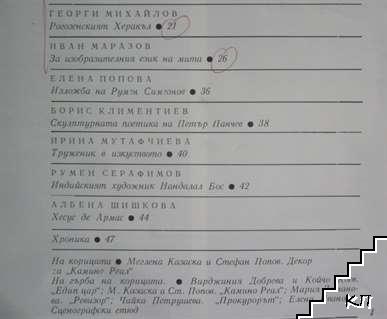 ГЕОРГИ МИХАЙЛОВ
Рогозенският Херакъл ● 21
ИВАН МАРАЗОВ
За изобразителния език на мита ● 26
ЕЛЕНА ПОПОВА
Изложба на Румян Симеонов ● 36
БОРИС КЛИМЕНТИЕВ
Скулптурната поетика на Петър Панчев ● 38
ИРИНА МУТАФЧИЕВА
Труженик в изкуството ● 40
РУМЕН СЕРАФИМОВ
Индийският художник Нандалал Бос ● 42
АЛБЕНА ШИШКОВА
Хесус де Армас ● 44
Хроника ● 47
На корицата ● Меглена Казаска и Стефан Попов. Декор
за „Камино Реал“
На гърба на корицата. ● Вирджиния Добрева и Койчо
„Едип цар“; М. Казаска и Ст. Попов. „Камино Реал“; Мария
ва. „Ревизор“; Чайка Петрушева. „Прокурорът“; Елена
Сценографски етюд
КЛ